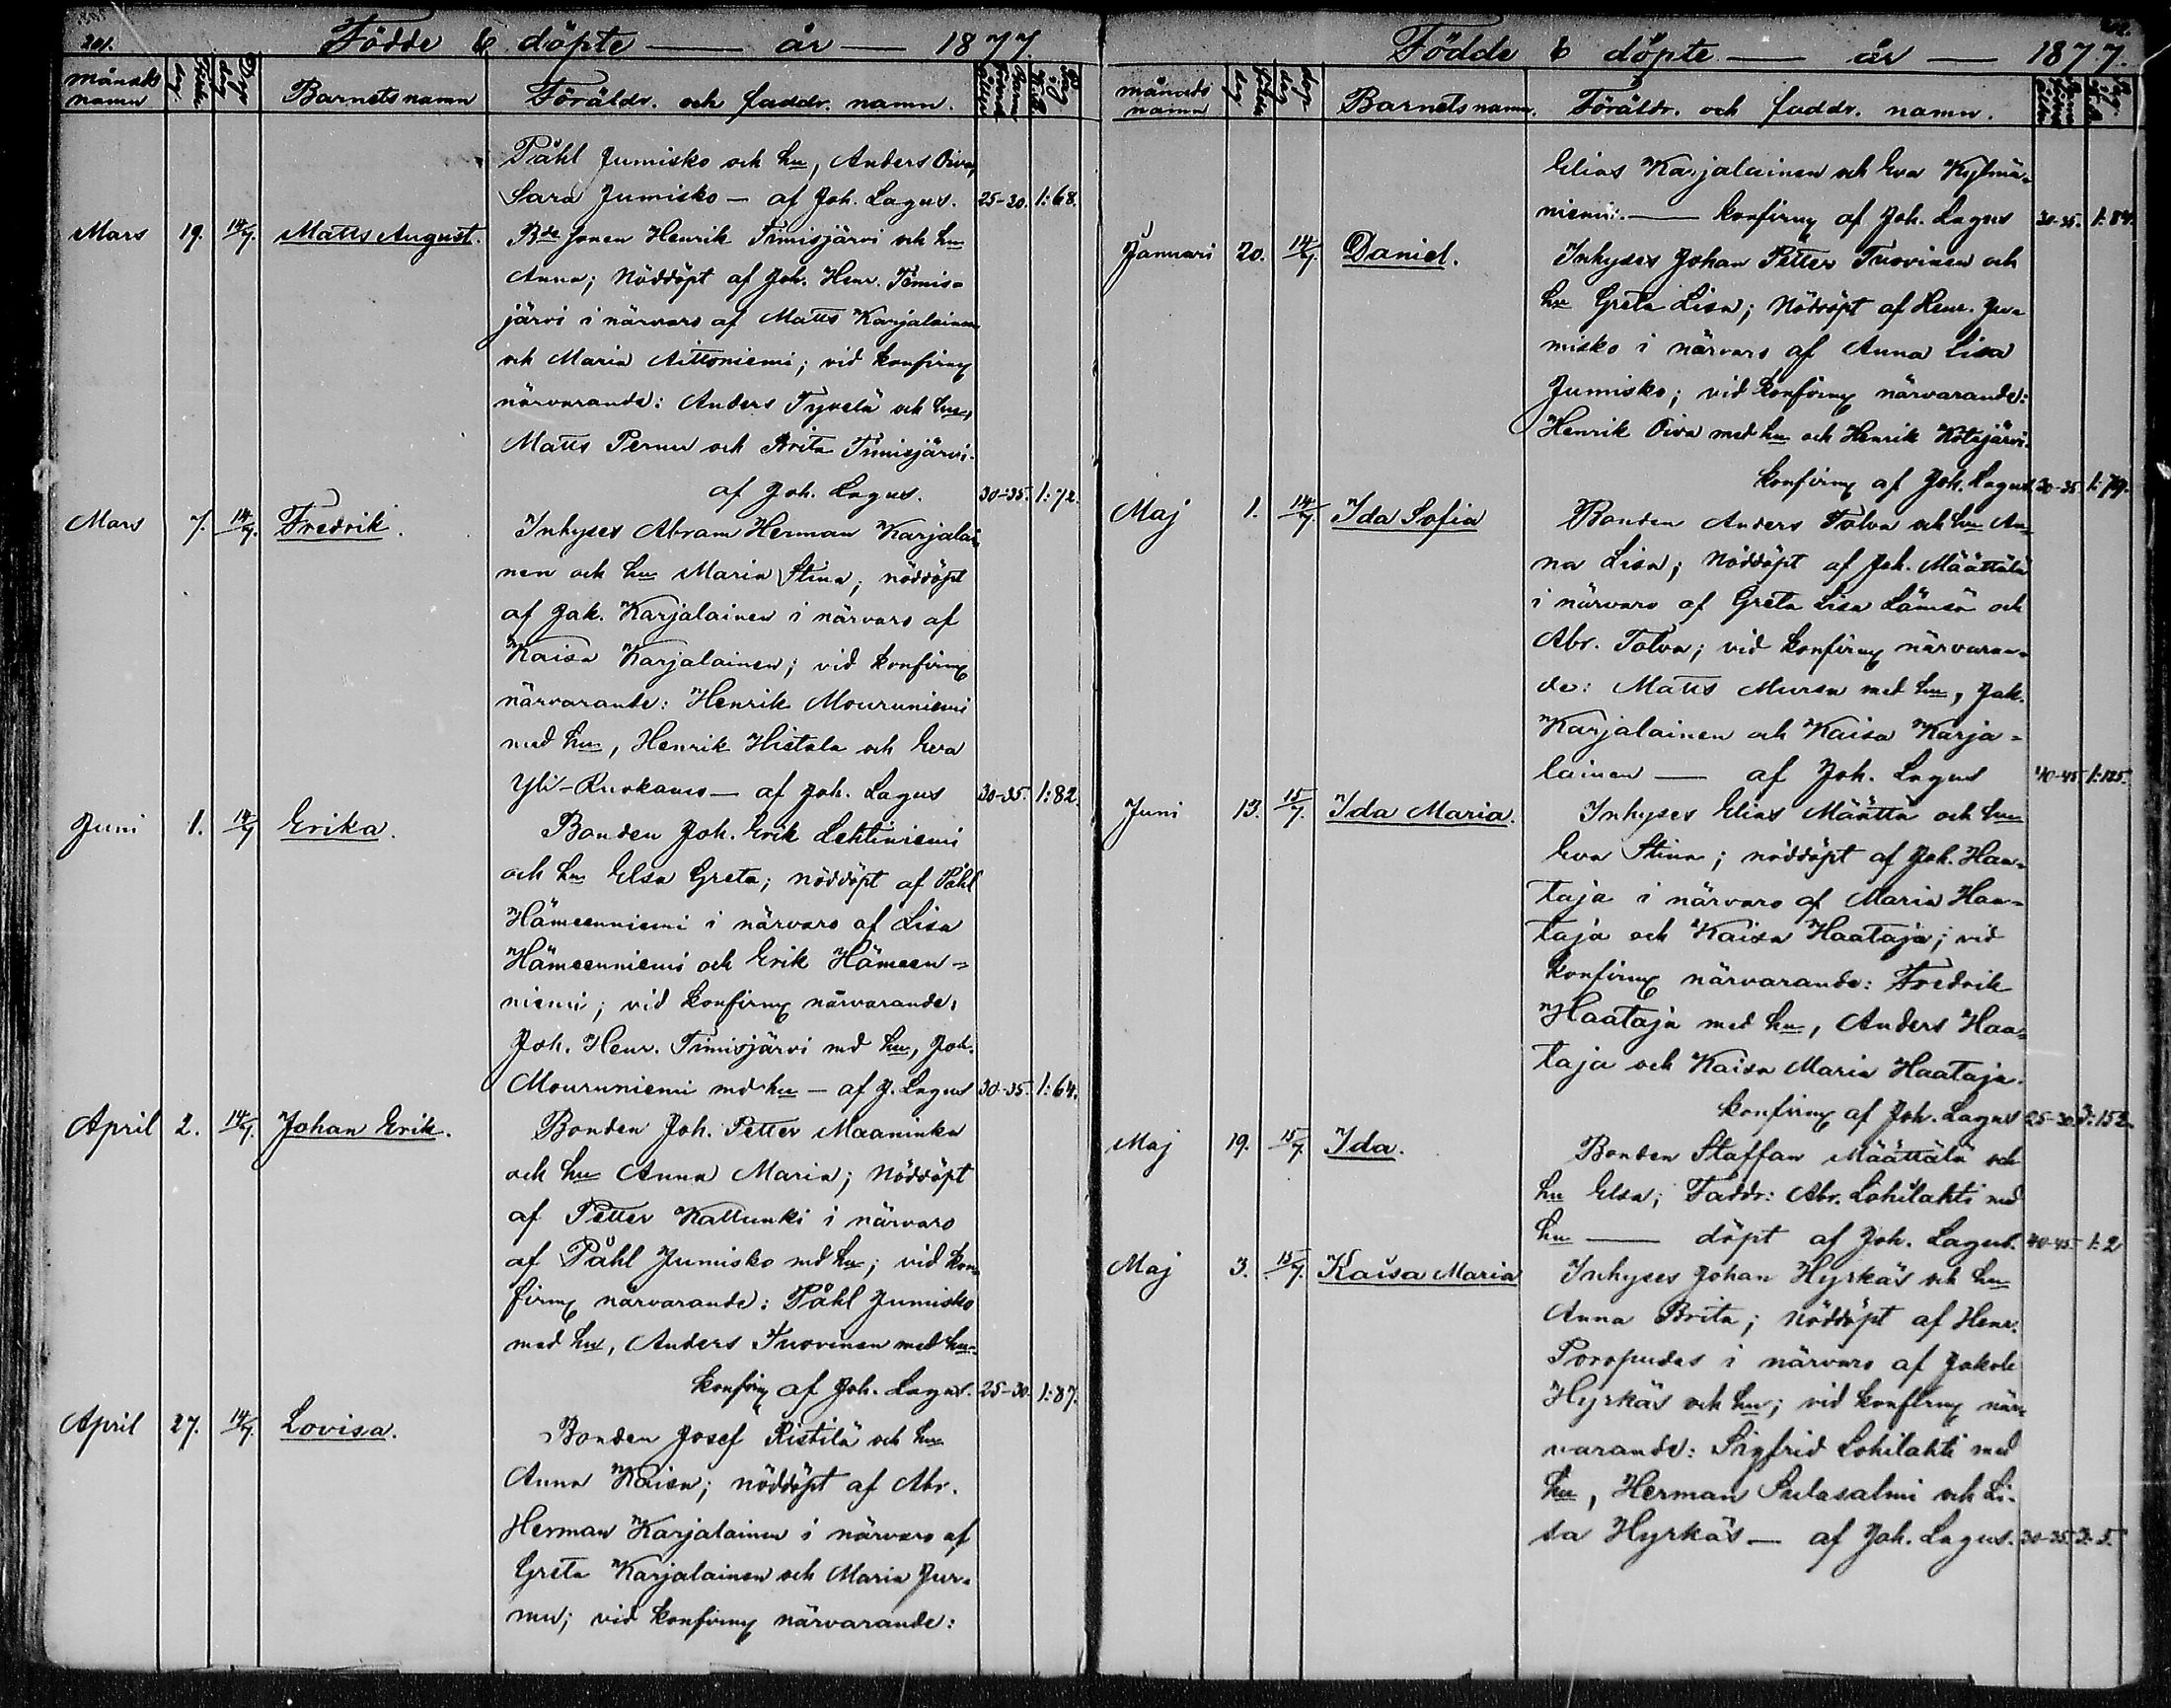 201.
Födde & döpte — år — 1877
månads namn
Barnets namn
Föräldr. och faddr. namn.
Påhl Jumisko och hu, Anders Oiva,
Sara Jumisko — af Joh. Lagus. 25-30. 1:68.
Mars 19. 14/7. Matts August. Bde sonen Henrik Timisjärvi och hu
Anna; Nöddöpt af Joh. Henr. Timis=
järvi i närvaro af Matts Karjalainen
och Maria Aittoniemi; vid konfirmg
närvarande: Anders Tyvelä och hu,
Matts Pernu och Brita Timisjärvi.
af Joh. Lagus. 30-35. 1:72.
Mars 7. 14/7. Fredrik. Inhyses Abram Herman Karjalai=
nen och hu Maria Stina; nöddöpt
af Jak. Karjalainen i närvaro af
Kaisa Karjalainen; vid konfirmg
närvarande: Henrik Mouruniemi
med hu, Henrik Histala och Eva
Yli-Ruokamo — af Joh. Lagus 30-35. 1:82.
Juni 1. 14/7 Erika. Bonden Joh. Erik Lehtiniemi
och hu Elsa Greta; nöddöpt af Påhl
Hämeenniemi i närvaro af Lisa
Hämeenniemi och Erik Hämeen=
niemi; vid konfirmg närvarande:
Joh. Henr. Timisjärvi md hu, Joh.
Mouruniemi md hu — af J. Lagus 30-35. 1:64.
April 2. 14/7. Johan Erik. Bonden Joh. Petter Maaninka
och hu Anna Maria; Nöddöpt
af Petter Kallunki i närvaro
af Påhl Jumisko md hu; vid kon=
firmg närvarande: Påhl Jumisko
med hu, Anders Tuovinen med hu.
konfirmg af Joh. Lagus. 25-30. 1:87.
April 27. 14/7. Lovisa. Bonden Josef Ristilä och hu
Anna Kaisa; nöddöpt af Abr.
Herman Karjalainen i närvaro af
Greta Karjalainen och Maria Jur=
mu; vid konfirmg närvarande:
Födde & döpte — år — 1877.
månads namn
Barnets namn.
Föräldr. och faddr. namn.
Elias Karjalainen och Eva Kylmä=
niemi. — konfirmg af Joh. Lagus 30-35. 1:84.
Januari 20. 14/7 Daniel. Inhyses Johan Petter Tuovinen och
hu Greta Lisa; Nöddöpt af Henr. Ju=
misko i närvaro af Anna Lisa
Jumisko; vid konfirmg närvarande:
Henrik Oiva med hu och Henrik Kotajärvi.
konfirmg af Joh. Lagus 30-35. 1:79.
Maj 1. 14/7. Ida Sofia Bonden Anders Tolva och hu An=
na Lisa; Nöddöpt af Joh. Määttälä
i närvaro af Greta Lisa Lämsä och
Abr. Tolva; vid konfirmg närvaran=
de: Matts Mursu med hu, Jak.
Karjalainen och Kaisa Karja=
lainen — af Joh. Lagus 40-45 1:125.
Juni 13. 15/7. Ida Maria. Inhyses Elias Määttä och hu
Eva Stina; nöddöpt af Joh. Haa=
taja i närvaro af Maria Haa=
taja och Kaisa Haataja; vid
konfirmg närvarande: Fredrik
Haataja med hu, Anders Haa=
taja och Kaisa Maria Haataja.
konfirmg af Joh. Lagus 25-30 3:152.
Maj 19. 15/7. Ida. Bonden Staffan Määttälä och
hu Elsa; Faddr: Abr. Lohilahti md
hu — döpt af Joh. Lagus. 40-45 1:2
Maj 3. 15/7. Kaisa Maria Inhyses Johan Hyrkäs och hu
Anna Brita; Nöddöpt af Henr.
Poropudas i närvaro af Jakob
Hyrkäs och hu; vid konfirmg när=
varande: Sigfrid Lohilahti med
hu, Herman Sulasalmi och Li=
sa Hyrkäs — af Joh. Lagus. 30-35. 3:5.